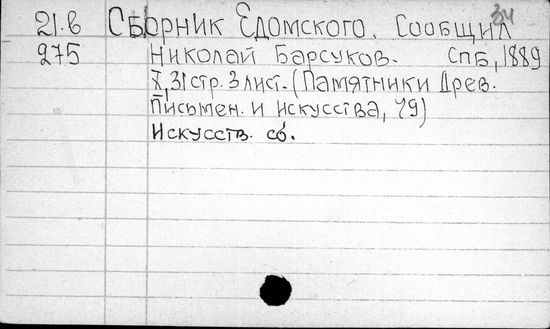 21.в Сборник Едомского. Сообщил
34
275 Николай Барсуков. Спб, 1889
X, 31 стр. 3 лист. (Памятники Древ.
Письмен. и искусства, 79)
Искусств. сб.